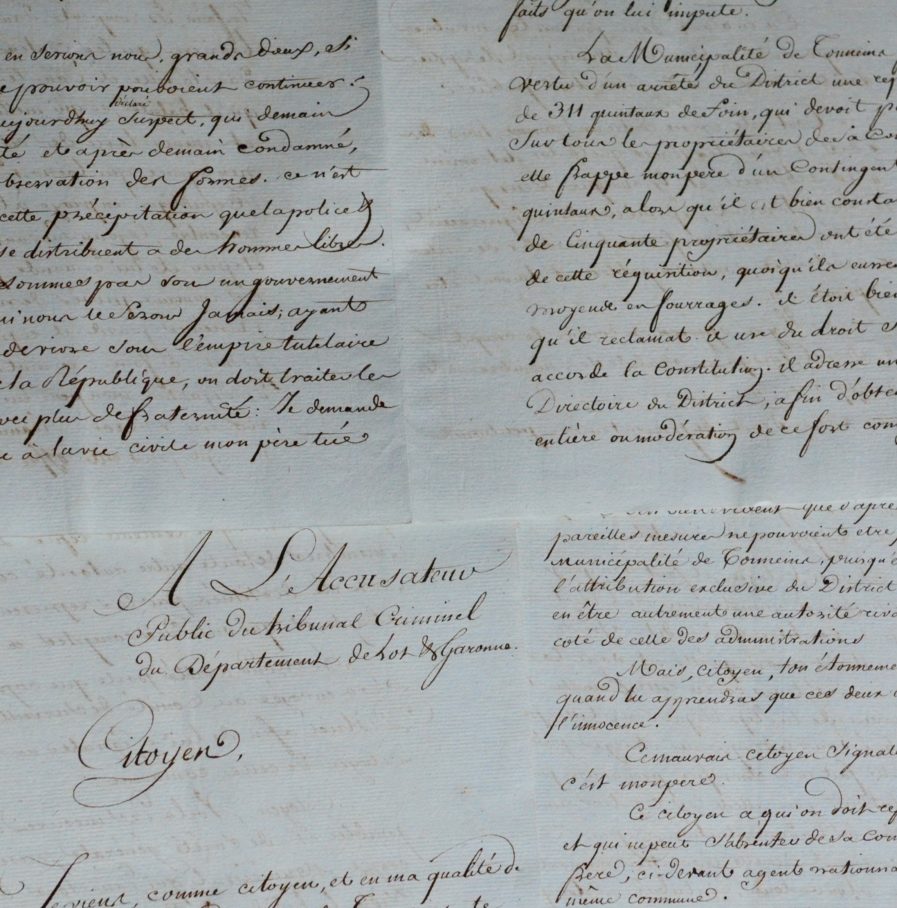 en serions nous, grands dieux, si
pouvoir pouvoient continuer.
déclaré
aujourdhuy suspect, qui demain
té et après demain condamné,
observation des formes. ce n'est
cette précipitation que la police &
se distribuent a des hommes libres.
sommes pas sous un gouvernement
nous le serons Jamais; ayant
de vivre sous l'empire tutelaire
la République, on doit traiter les
avec plus de fraternité: Je demande
à la vie civile mon père tiré
faits qu'on lui impute.
La Municipalité de Tonneins
vertu d'un arrêté du District une req
de 311 quintaux de foin, qui devoit p
Sur tous les propriétaires de sa Com
elle frappe mon père d'un Contingent
quintaux, alors qu'il est bien consta
de Cinquante propriétaires ont été
de cette réquisition, quoiqu'ils eussent
moyens en fourrages. il étoit bien
qu'il reclamat. il use du droit
accorde la Constitution. il adresse un
Directoire du District, afin d'obte
entière ou modération de ce fort con
A L'Accusateur
Public du tribunal Criminel
du Département de Lot & Garonne.
Citoyen,
Je viens, comme citoyen, et en ma qualité de
que d'apre
pareilles mesures ne pouvoient etre
Municipalité de Tonneins, puisqu'e
l'attribution exclusive du District
en être autrement une autorité riva
coté de celle des administrations
Mais, citoyen, ton étonneme
quand tu apprendras que ces deux
l'innocence.
Ce mauvais citoyen signal
c'est mon pere.
Ce citoyen a qui on doit re
et qui ne peut s'absenter de sa Com
frere, ci-devant agent nationa
même commune.